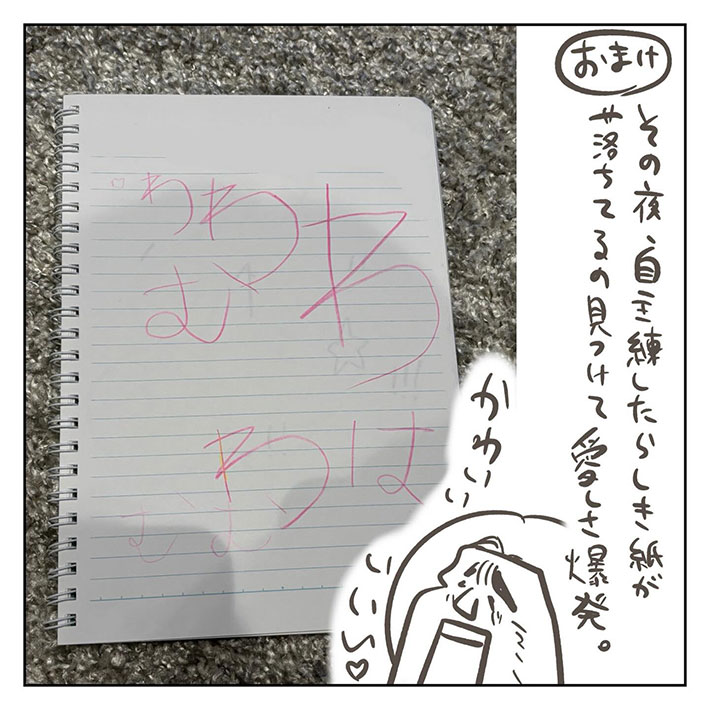 おまけ
その夜、自主練したらしき紙が
落ちてるの見つけて愛しさ爆発。
わわわ
む
わは
むむ
かわいい
いいい♡